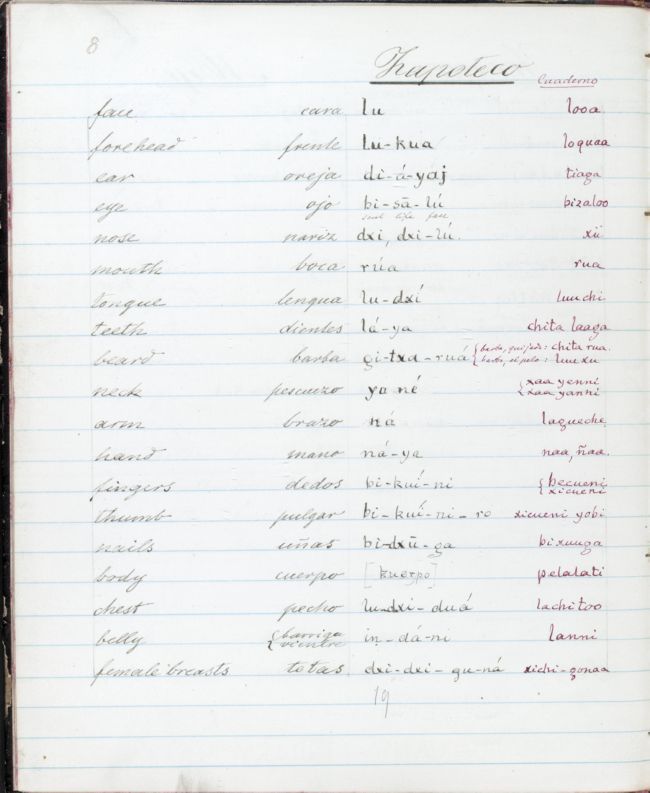 8
Zapoteco Cuaderno
face cara lu looa
forehead frente lu-kua loquaa
ear oreja di-á-yaj tiaga
eye ojo bi-sā-lú bizaloo
seed like face
nose nariz dxi, dxi-lú. xii
mouth boca rúa rua
tongue lengua lu-dxí luuchi
teeth dientes lá-ya chita laaga
beard barba gi-txa-ruá { barba, quijada: chita rua.
barba, el pelo: luuxu
neck pescuezo ya né { xaa yenni
xaa yanni
arm brazo ná lagueche
hand mano ná-ya naa, ñaa.
fingers dedos bi-kuí-ni { becueni
xicueni
thumb pulgar bi-kuí-ni-ro xicueni yobi
nails uñas bi-dxū-ga bixuuga
body cuerpo [kuerpo] pelalati
chest pecho lu-dxi-duá lachitoo
belly { barriga
vientre in-dá-ni lanni
female breasts tetas dxi-dxi-gu-ná xichi-gonaa
19